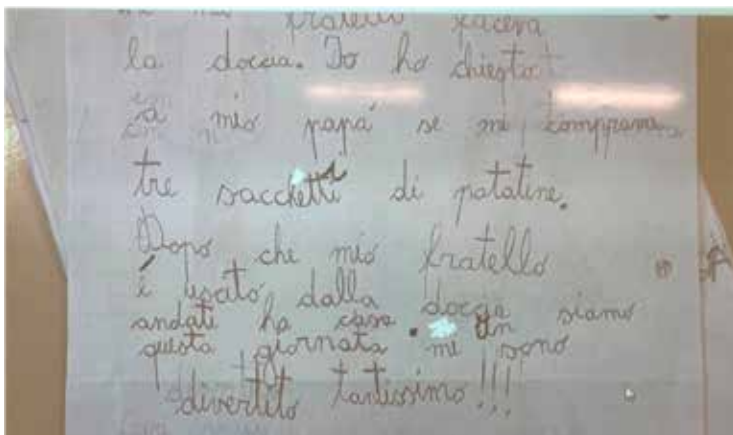 mio fratello faceva
la doccia. Io ho chiesto
a mio papà se mi
tre sacchetti di patatine.
Dopo che mio fratello
é uscito dalla siamo
andati ha casa. in
questa giornata mi sono
divertito tantissimo!!!